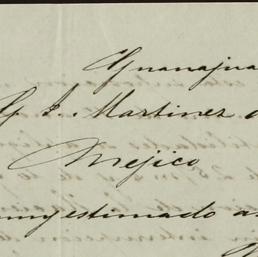 Guanajua
G. J. Martinez
Mejico
muy estimado a